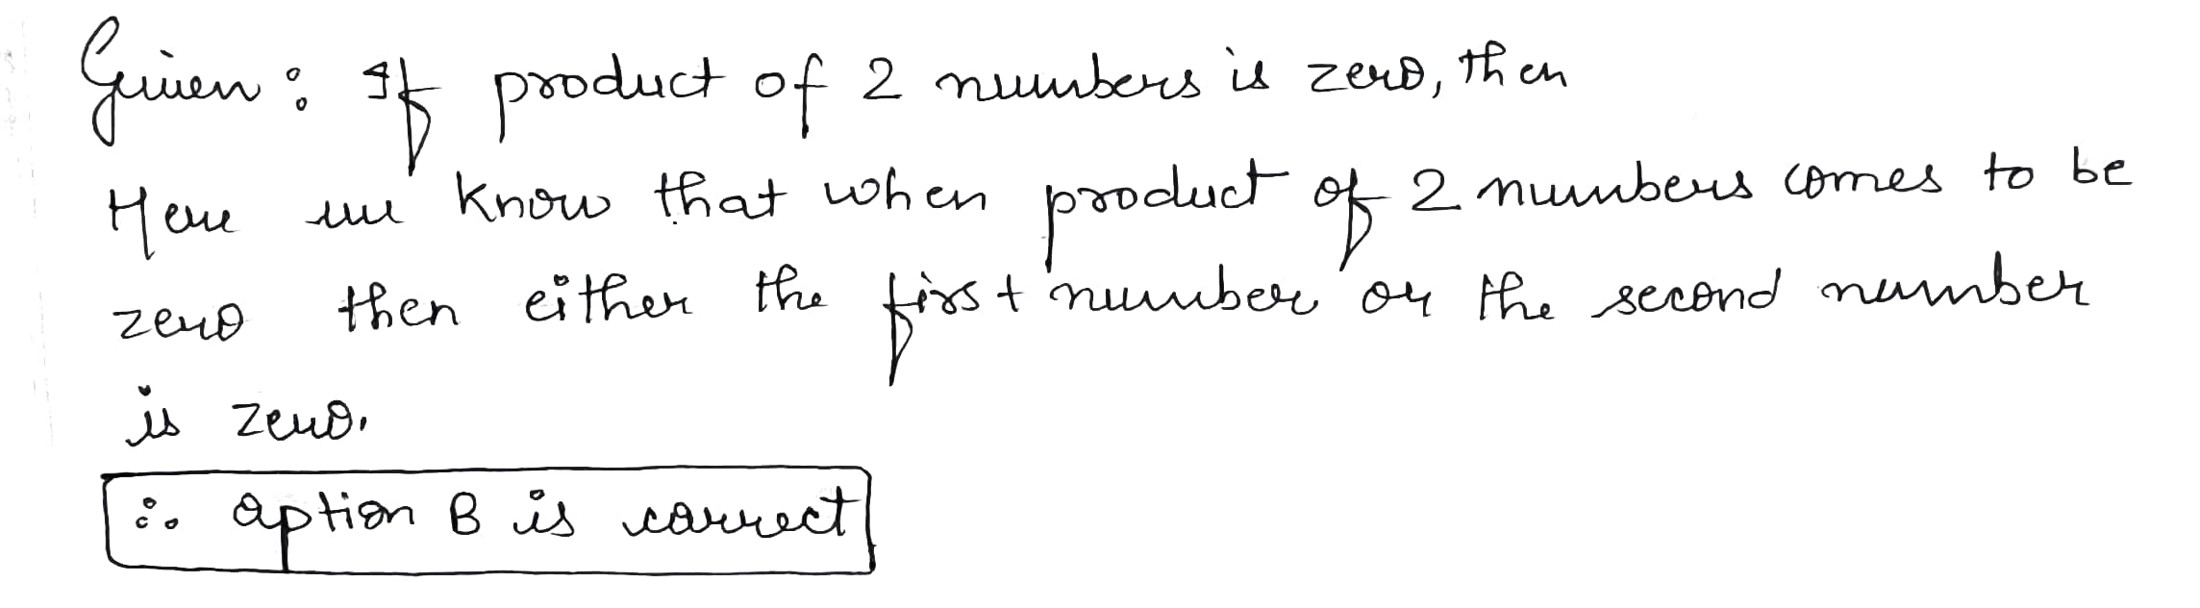 Given : If product of 2 numbers is zero, then
Here we know that when product of 2 numbers comes to be
zero then either the first number or the second number
is zero.
∴ option B is correct